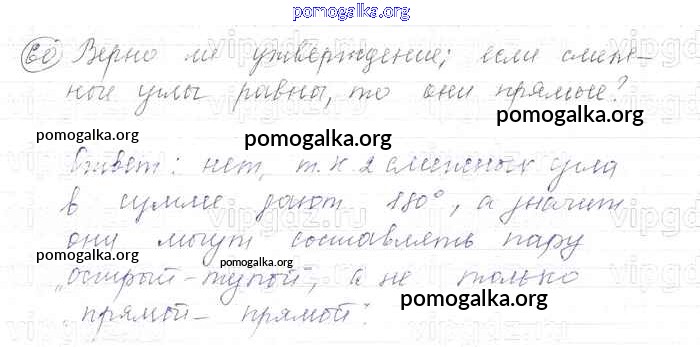 pomogalka.org
60 Верно ли утверждение; если смеж-
ные углы равны, то они прямые?
pomogalka.org
pomogalka.org
pomogalka.org
Ответ: нет, т.к 2 смежных угла
в сумме дают 180°, а значит
они могут составлять пару
pomogalka.org
„острый-тупой", а не только
pomogalka.org
„прямой- прямой".